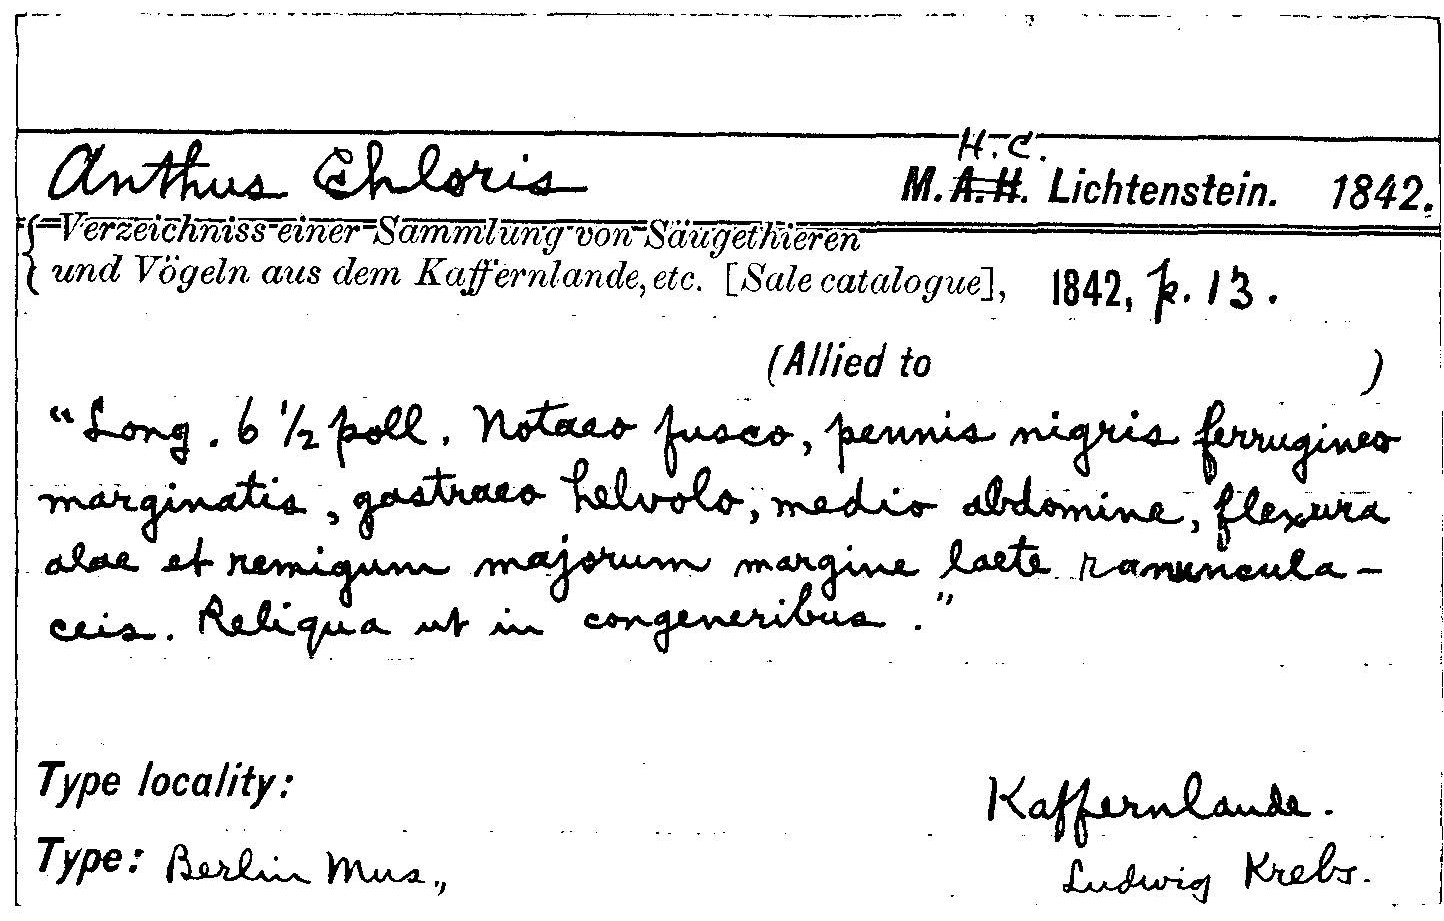 H.C.
Anthus Chloris M. A.H. Lichtenstein. 1842.
{ Verzeichniss einer Sammlung von Säugethieren
und Vögeln aus dem Kaffernlande, etc. [Sale catalogue], 1842, p. 13.
(Allied to )
"Long. 6 1/2 poll. Notaeo fusco, pennis nigris ferrugineo
marginatis, gastraeo helvolo, medio abdomine, flexura
alae et remigum majorum margine laete ranuncula-
ceis. Reliqua ut in congeneribus."
Type locality: Kaffernlande.
Type: Berlin Mus., Ludwig Krebs.